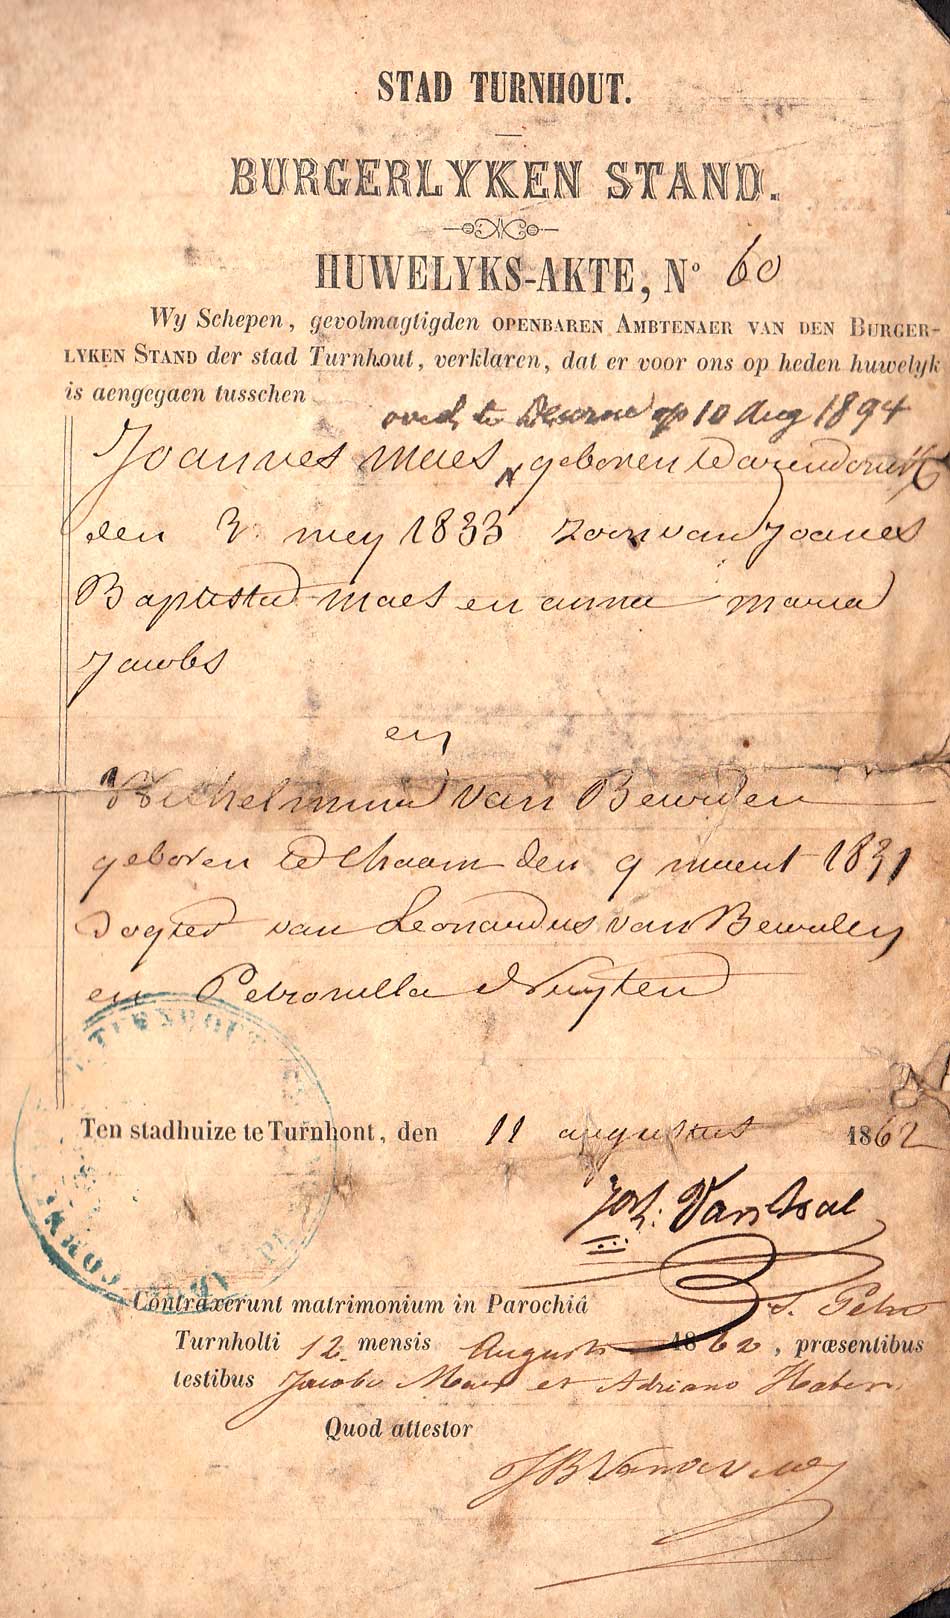 STAD TURNHOUT.
BURGERLYKEN STAND.
HUWELYKS-AKTE, Nº 60
Wy Schepen, gevolmagtigden OPENBAREN AMBTENAER VAN DEN BURGER-
LYKEN STAND der stad Turnhout, verklaren, dat er voor ons op heden huwelyk
is aengegaen tusschen
overl. te Deurne op 10 Aug 1894
Joannes Maes geboren te arendonck
den 3 mey 1833 zoon van Joanes
Baptista Maes en anna maria
Jacobs
en
Wilhelmina van Bewulen
geboren te Chaam den 9 maert 1831
Dogter van Leonardus van Bewulen
en Petronella Nuyten
TURNHOUT
Ten stadhuize te Turnhout, den 11 augustus 1862
Contraxerunt matrimonium in Parochiâ S. Petri
Turnholti 12 mensis Augusti 1862, præsentibus
testibus Jacobo Maes et Adriano
Quod attestor